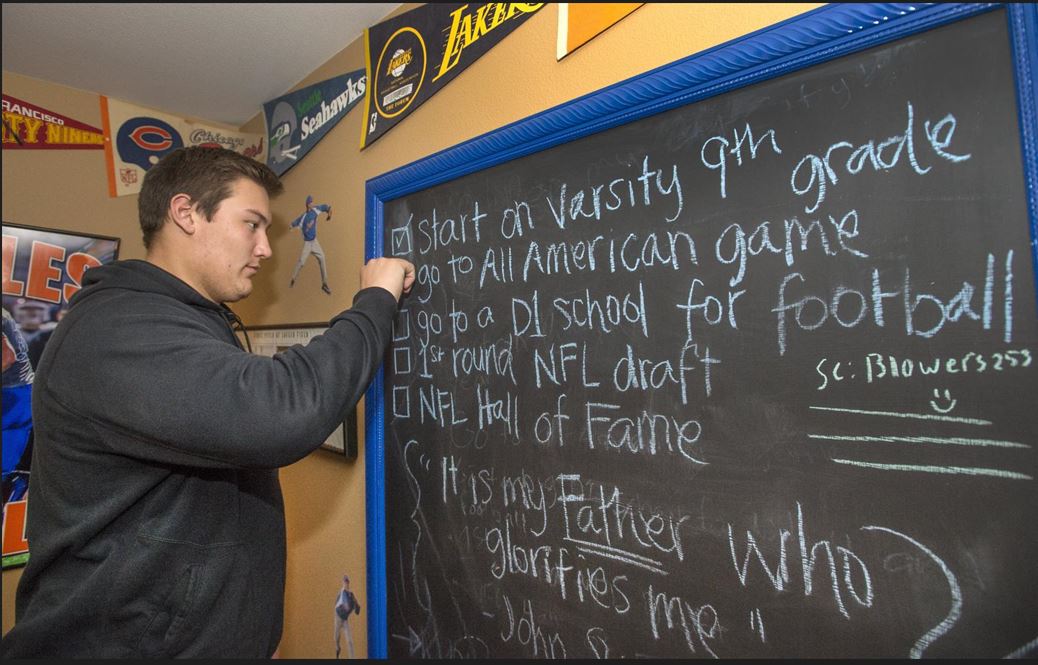 RANCISCO
TY NINERS
Chicago
Bears
NFL
Seattle
Seahawks
LAKERS
LAKERS
THE FORUM
LES
☑ start on varsity 9th grade
go to All American game
☐ go to a D1 school for football
☐ 1st round NFL draft
☐ NFL Hall of Fame
SC: Blowers253
"It is my Father who
glorifies me"
- John 8